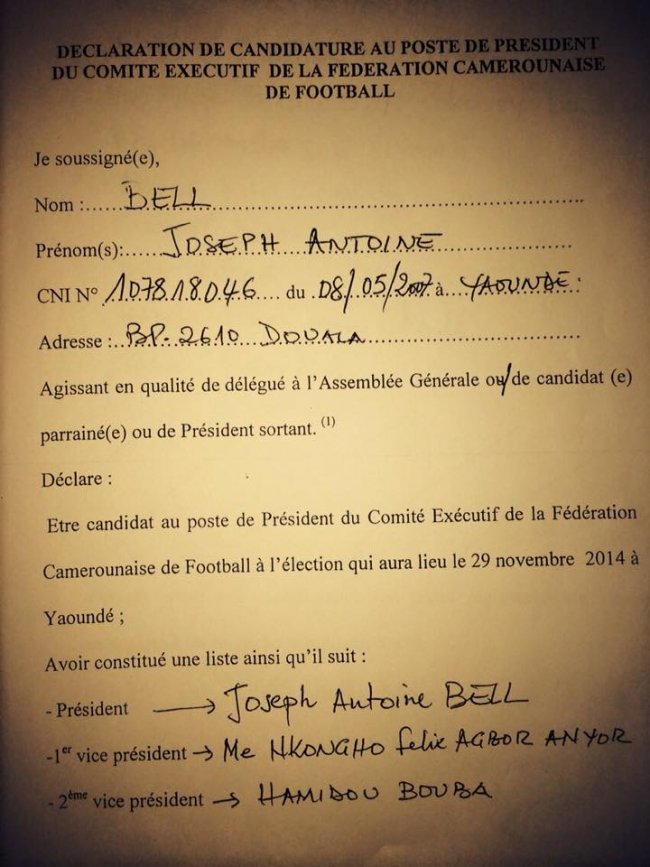 DECLARATION DE CANDIDATURE AU POSTE DE PRESIDENT
DU COMITE EXECUTIF DE LA FEDERATION CAMEROUNAISE
DE FOOTBALL
Je soussigné(e),
Nom :...... BELL ......
Prénom(s):..... JOSEPH ANTOINE ......
CNI N° 107818046 .... du 08/05/2007 à .... YAOUNDE :
Adresse :.. BP. 2610 DOUALA ......
Agissant en qualité de délégué à l'Assemblée Générale ou/de candidat (e)
parrainé(e) ou de Président sortant. (1)
Déclare :
Etre candidat au poste de Président du Comité Exécutif de la Fédération
Camerounaise de Football à l'élection qui aura lieu le 29 novembre 2014 à
Yaoundé ;
Avoir constitué une liste ainsi qu'il suit :
- Président → Joseph Antoine BELL
-1er vice président → Me NKONGHO felix AGBOR ANYOR
- 2ème vice président → HAMIDOU BOUBA